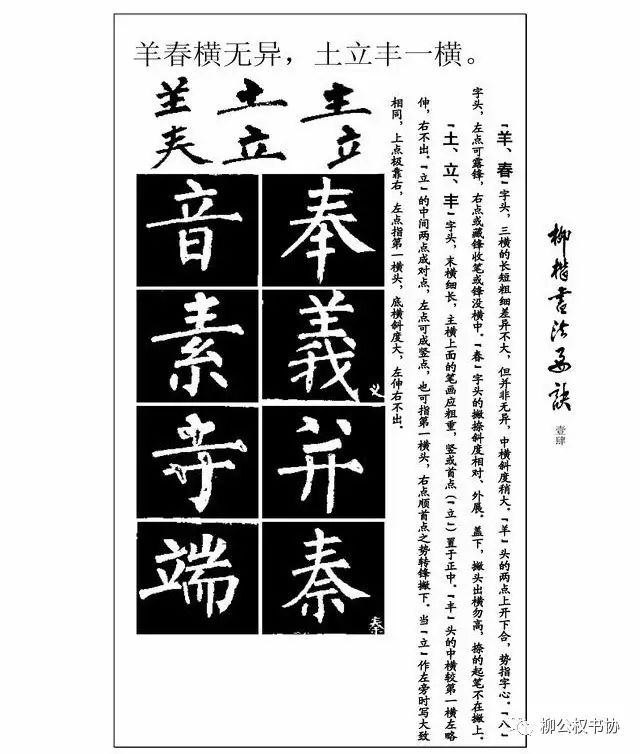 羊春横无异，土立丰一横。
土
立 立
奉
義
义
并
秦
音
素
寺
端
『羊、春』字头，三横的长短粗细差异不大，但并非无异，中横斜度稍大。『羊』头的两点上开下合，势指字心。『八』
字头，左点可露锋，右点或藏锋收笔或锋没横中。『春』字头的撇捺斜度相对、外展。盖下，撇头出横勿高，捺的起笔不在撇上。
『土、立、丰』字头，末横细长，主横上面的笔画应粗重，竖或首点（『立』）置于正中。『丰』头的中横较第一横左略
伸，右不出。『立』的中间两点成对点，左点可成竖点，也可指第一横头，右点顺首点之势转锋撇下。当『立』作左旁时写大致
相同，上点极靠右，左点指第一横头，底横斜度大，左伸右不出。
柳楷書法要訣
壹肆
柳公权书协